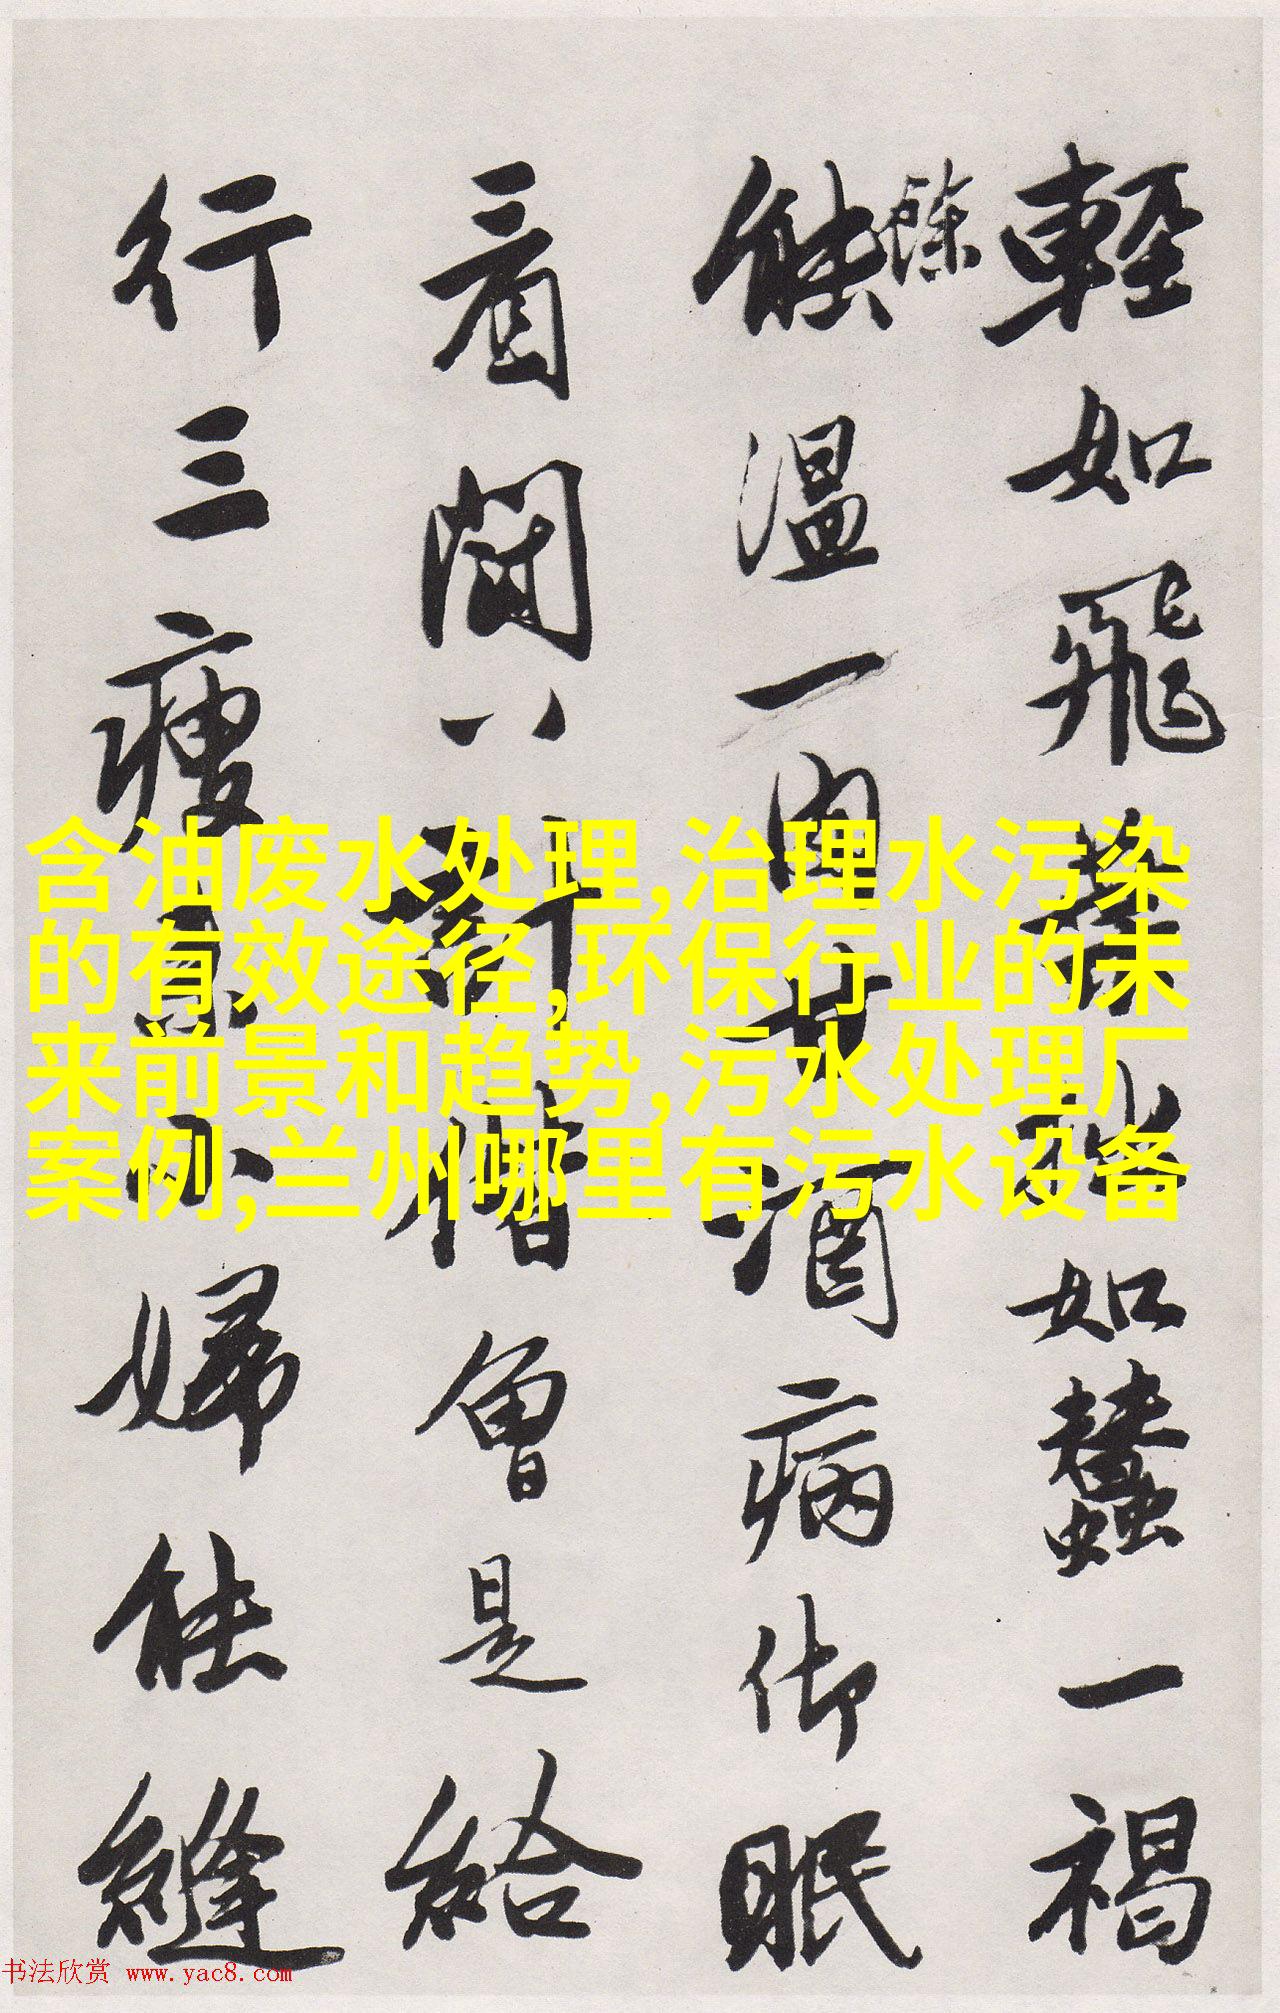 輕如飛㷼如蠶一褐
餘
能溫一肉
酒病御眠
看閑八
偕會是給
行三瘦
小婦能縫
含油废水处理,治理水污染
的有效途径,环保行业的未
来前景和趋势,污水处理厂
案例,兰州哪里有污水设备
书法欣赏 www.yac8.com